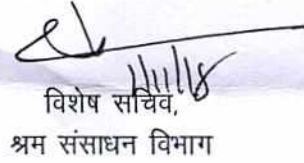 1/11/18
विशेष सचिव,
श्रम संसाधन विभाग